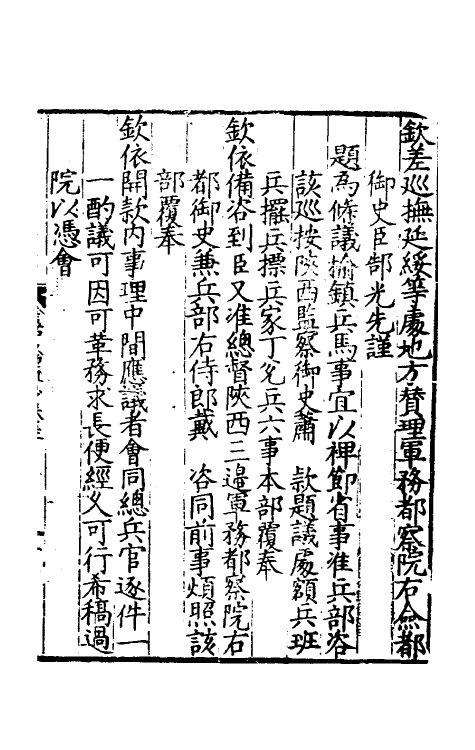 欽差巡撫延綏等處地方贊理軍務都察院右僉都
御史臣郜光先謹
題為條議榆鎮兵馬事宜以裨節省事准兵部咨
該巡按陝西監察御史蕭 款題議處額兵班
兵擺兵摽兵家丁兌兵六事本部覆奉
欽依備咨到臣又准總督陝西三邉軍務都察院右
都御史兼兵部右侍郎戴 咨同前事煩照該
部覆奉
欽依開款内事理中間應議者會同總兵官逐件一
一酌議可因可革務求長便經乆可行希稿過
院以憑會